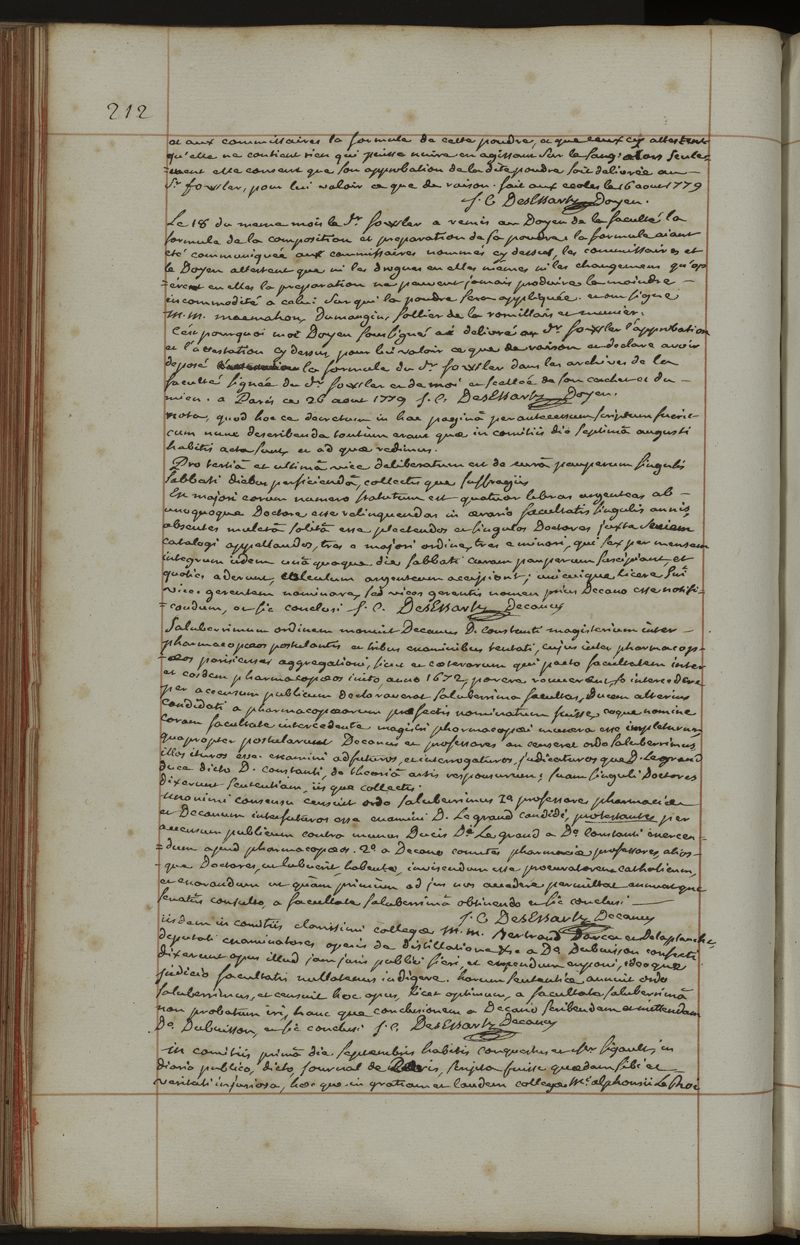 212
et aux commissaires la formule de cette poudre, et que ceux cy attestent
qu'elle ne contient rien qui puisse nuire en agissant sur le sang, alors seule=
=ment elle consent que son approbation de la dite poudre soit delivrée au
Sr fowler, pour lui valoir ce que de raison. fait aux ecoles le 16 aout 1779
J. C. DesEssartz Doyen.
Le 18 du meme mois le Sr fowler a remis au Doyen de la faculté la
formule de la composition et preparation de sa poudre: la formule aiant
eté communiquée aux commissaires nommés cy dessus, les commissaires et
le Doyen attestent que ni les drogues en elles mêmes ni les changemens qu'op
=érent en elles la preparation ne peuvent jamais produire la moindre –
incommodité a celui sur qui la poudre sera appliquée. et ont signé
M. M. macmahon, Dumangin, Sollier de la romillais et meunier.
C'est pourquoi moi Doyen soussigné ai delivré au Sr fowler l'approbation
et l'attestation cy dessus pour lui valoir ce que de raison et declare avoir
deposé la formule du Sr fowler dans les archives de la
faculté signée du Sr fowler et de moi et scellée de son cachet et du –
mien. a Paris ce 26 aout 1779 J. C. DesEssartz Doyen.
nota, quod hoc ce decretum in hac paginâ per antecessum scriptum fuerit
cum nunc describenda tantum erant quæ in comitiis die septimâ augusti
habitis acta sunt et ad quæ redimus.
Pro tertiâ et ultimâ vice deliberatum est de curâ pauperum singulis
sabbati diebus perficiendâ, collectis que suffragiis
Ex majori eorum numero statutum est quatuor libras argenteas ab –
unoquoque Doctore esse relinquendas in ærario facultatis singulis annis
absentes mulctâ solitâ esse plectendos et singulos Doctores juxta seriem
catalogi appellandos, tres e majori ordine, tres e minori, qui sex per mensem
integrum iidem unâ quaque die sabbati curam pauperum suscipiant, et
quoties aderunt, calculum argenteum accipient; unicuique licere sui
vices gerentem nominare, sed vices gerentis nomen prius Decano esse notifi=
=candum, et sic conclusi J. C. DesEssartz Decanus
Saluberrimum ordinem monuit Decanus D. Constanti magisterium inter –
pharmacopæos postulantis et tribus examinibus tentati, cujus inter pharmacop=
=æos parisienses aggregationi, sicut et cæterorum qui pacto facultatem inter
et eosdem pharmacopæos inito anno 1672, parere renuerunt se intercedere
per accensum publicum declaraverat saluberrima facultas, Ducem alterius
candidati a pharmacopæorum præfectis nominatum fuisse, eoque nomine
coram facultate intercedente magistri pharmacopæi munera esse impleturum
quapropter postularunt Decanus et professores an censeret ordo saluberrimus
illos ituros esse examini adfuturos, et interrogaturos, judicaturos que D. Legrand
duce dicto D. Constanti, de theoriâ artis responsurum; suam singuli Doctores
dixerunt sententiam, iis que collectis.
Unanimi consensu censuit ordo saluberrimus 1o professores pharmaciæ
et Decanum interfuturos esse examini D. Le grand candidi, protestantes per
accensum publicum contra munus Ducis Do. Le grand a Do. Constanti exercen=
=dum apud pharmacopæos. 2o a Decano comites pharmaciæ professores, alios=
que Doctores, ut lubuerit, habente, invisendum esse procuratorem catholicum,
et exorandum ut quàm primùm ad jus nos accedere permittat annuatque
senatûs consulto, a facultate saluberrimâ obtinendo et sic conclusi
J. C. DesEssartz Decanus
iisdem in comitiis clarissimi collegæ M. M. Bertrand Darcet et Delaplanche
deputati examinatores operis de distillatione &c a Do. Dubuisson confecti
dixerunt opus illud jam juris publici fieri, et emendum exponi, ideoque
judicio facultatis nullatenus indigere. horum sententiæ annuit ordo
saluberrimus, et censuit hoc opus, licet optimum, a facultate saluberrimâ
non probatum iri, hanc que conclusionem a Decano scribendam et mittendam
Do. Dubuisson, et sic conclusi J. C. DesEssartz Decanus
in comitiis primâ die septembris habitis conquestus est Mr Sigault, in
diario publico, dicto, Journal de Paris, scripta fuisse quædam sibi et
veritati injuriosa, hoc que in gratiam et laudem collegæ Mi alphonsii Le Roi